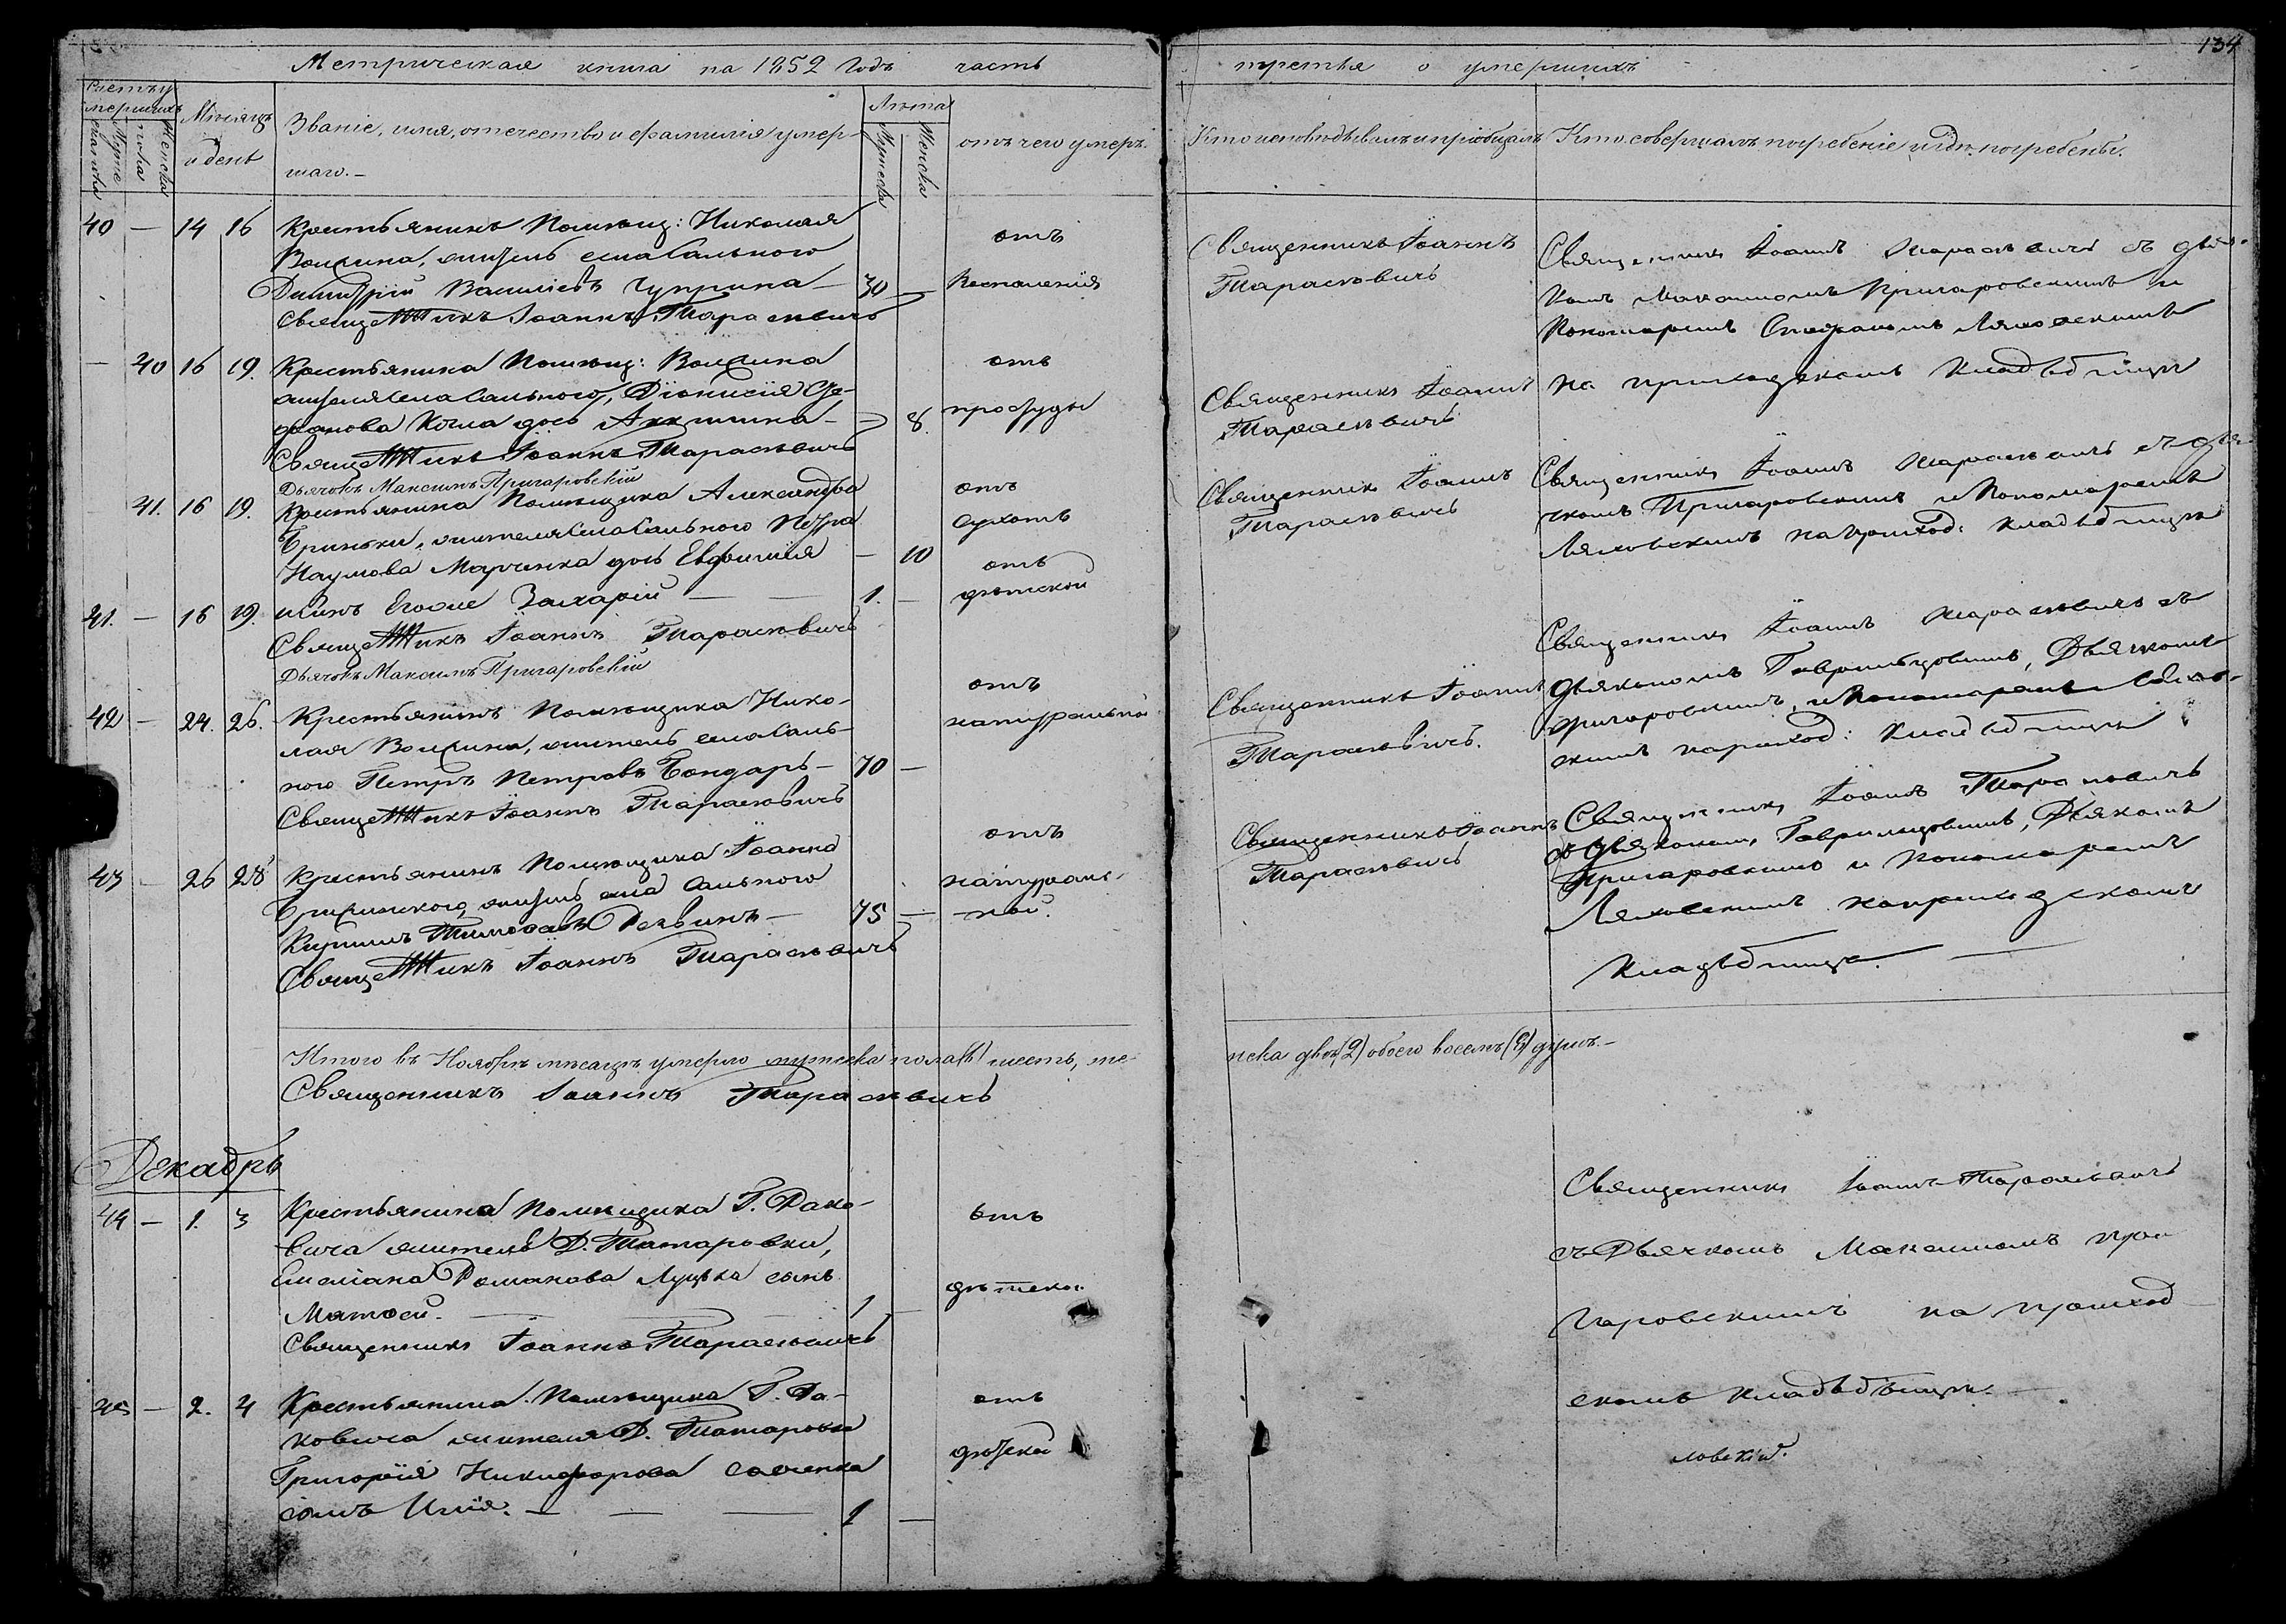 134
Метрическая книга на 1852 годъ часть
третья о умершихъ
Счетъ умершихъ
Мужеска пола
Женска
Мѣсяцъ и день
Званіе, имя, отечество и фамилія умер-
шаго.-
Лѣта
Мужеска
Женска
отъ чего умеръ.
Кто исповѣдывалъ и пріобщалъ
Кто совершалъ погребеніе и гдѣ погребены.
40 — 14 16 Крестьянинъ Помѣщ: Николая
житель села Сального
Димитрій Василіевъ Чуприна — 30 —
Священникъ Іоаннъ Тарасѣвичъ
отъ
Воспаленія
Священникъ Іоаннъ
Тарасѣвичъ
Священникъ Іоаннъ Тарасѣвичъ съ дья-
комъ Максимомъ Пригаровскимъ и
Пономаремъ Стефаномъ Ляховскимъ
на приходскомъ Кладбѣищи
— 40 16 19. Крестьянина Помѣщ:
жителя села Сального, Діонисія Сте-
фанова дочь — 8.
Священникъ Іоаннъ Тарасѣвичъ
Дьячокъ Максимъ Пригаровскій
отъ
простуды
Священникъ Іоаннъ
Тарасѣвичъ
41. 16 19. Крестьянина Помѣщика Александра
жителя села Сального Петра
Наумова Марченка дочь Евфимія — 10
отъ
Сухотъ
Священникъ Іоаннъ
Тарасѣвичъ
Священникъ Іоаннъ Тарасѣвичъ съ дья-
чкомъ Пригаровскимъ и Пономаремъ
Ляховскимъ на приход: кладбѣищи
41. — 16 19. Захарій — — 1. —
Священникъ Іоаннъ Тарасѣвичъ
Дьячокъ Максимъ Пригаровскій
отъ
дѣтской
42 — 24. 26. Крестьянинъ Помѣщика Нико-
лая житель села Саль-
ного Петръ Петровъ Бондарь — 70 —
Священникъ Іоаннъ Тарасѣвичъ
отъ
натуральной
Священникъ Іоаннъ
Тарасѣвичъ.
Священникъ Іоаннъ Тарасѣвичъ съ
Дьякономъ Гаврильцовимъ, Дьячкомъ
Пригаровскимъ, и Пономаремъ
на приход: Кладбѣищи
43 — 26 28 Крестьянинъ Помѣщика Іоанна
житель села Сального
Кирилъ — 75 —
Священникъ Іоаннъ Тарасѣвичъ
отъ
натураль-
ной.
Священникъ Іоаннъ
Тарасѣвичъ
Священникъ Іоаннъ Тарасѣвичъ
съ Дьякономъ Гаврильцовимъ, Дьякомъ
Пригаровскимъ и Пономаремъ
Ляховскимъ на приходскомъ
Кладбѣищи. —
Итого въ Ноябрѣ мѣсяцѣ умерло мужеска пола (6) шесть, же-
нска двѣ (2) обоего восемь (8) душъ.-
Священникъ Іоаннъ Тарасѣвичъ
Декабрь
44 — 1. 3 Крестьянина Помѣщика Г. Рако-
вича житель Д. Татаровки,
Емеліана Романова Луцька сынъ
Матѳей. — — 1 —
Священникъ Іоаннъ Тарасѣвичъ
отъ
дѣтской
Священникъ Іоаннъ Тарасѣвичъ
съ Дьячкомъ Максимомъ При
гаровскимъ на приход
скомъ кладбѣищи.
45 — 2. 4 Крестьянина Помѣщика Г. Ра-
ковича жителя Д. Татаровки
Григорія Никифорова Савченка
сынъ Илія. — — — 1 —
отъ
дѣтской
ловскій.